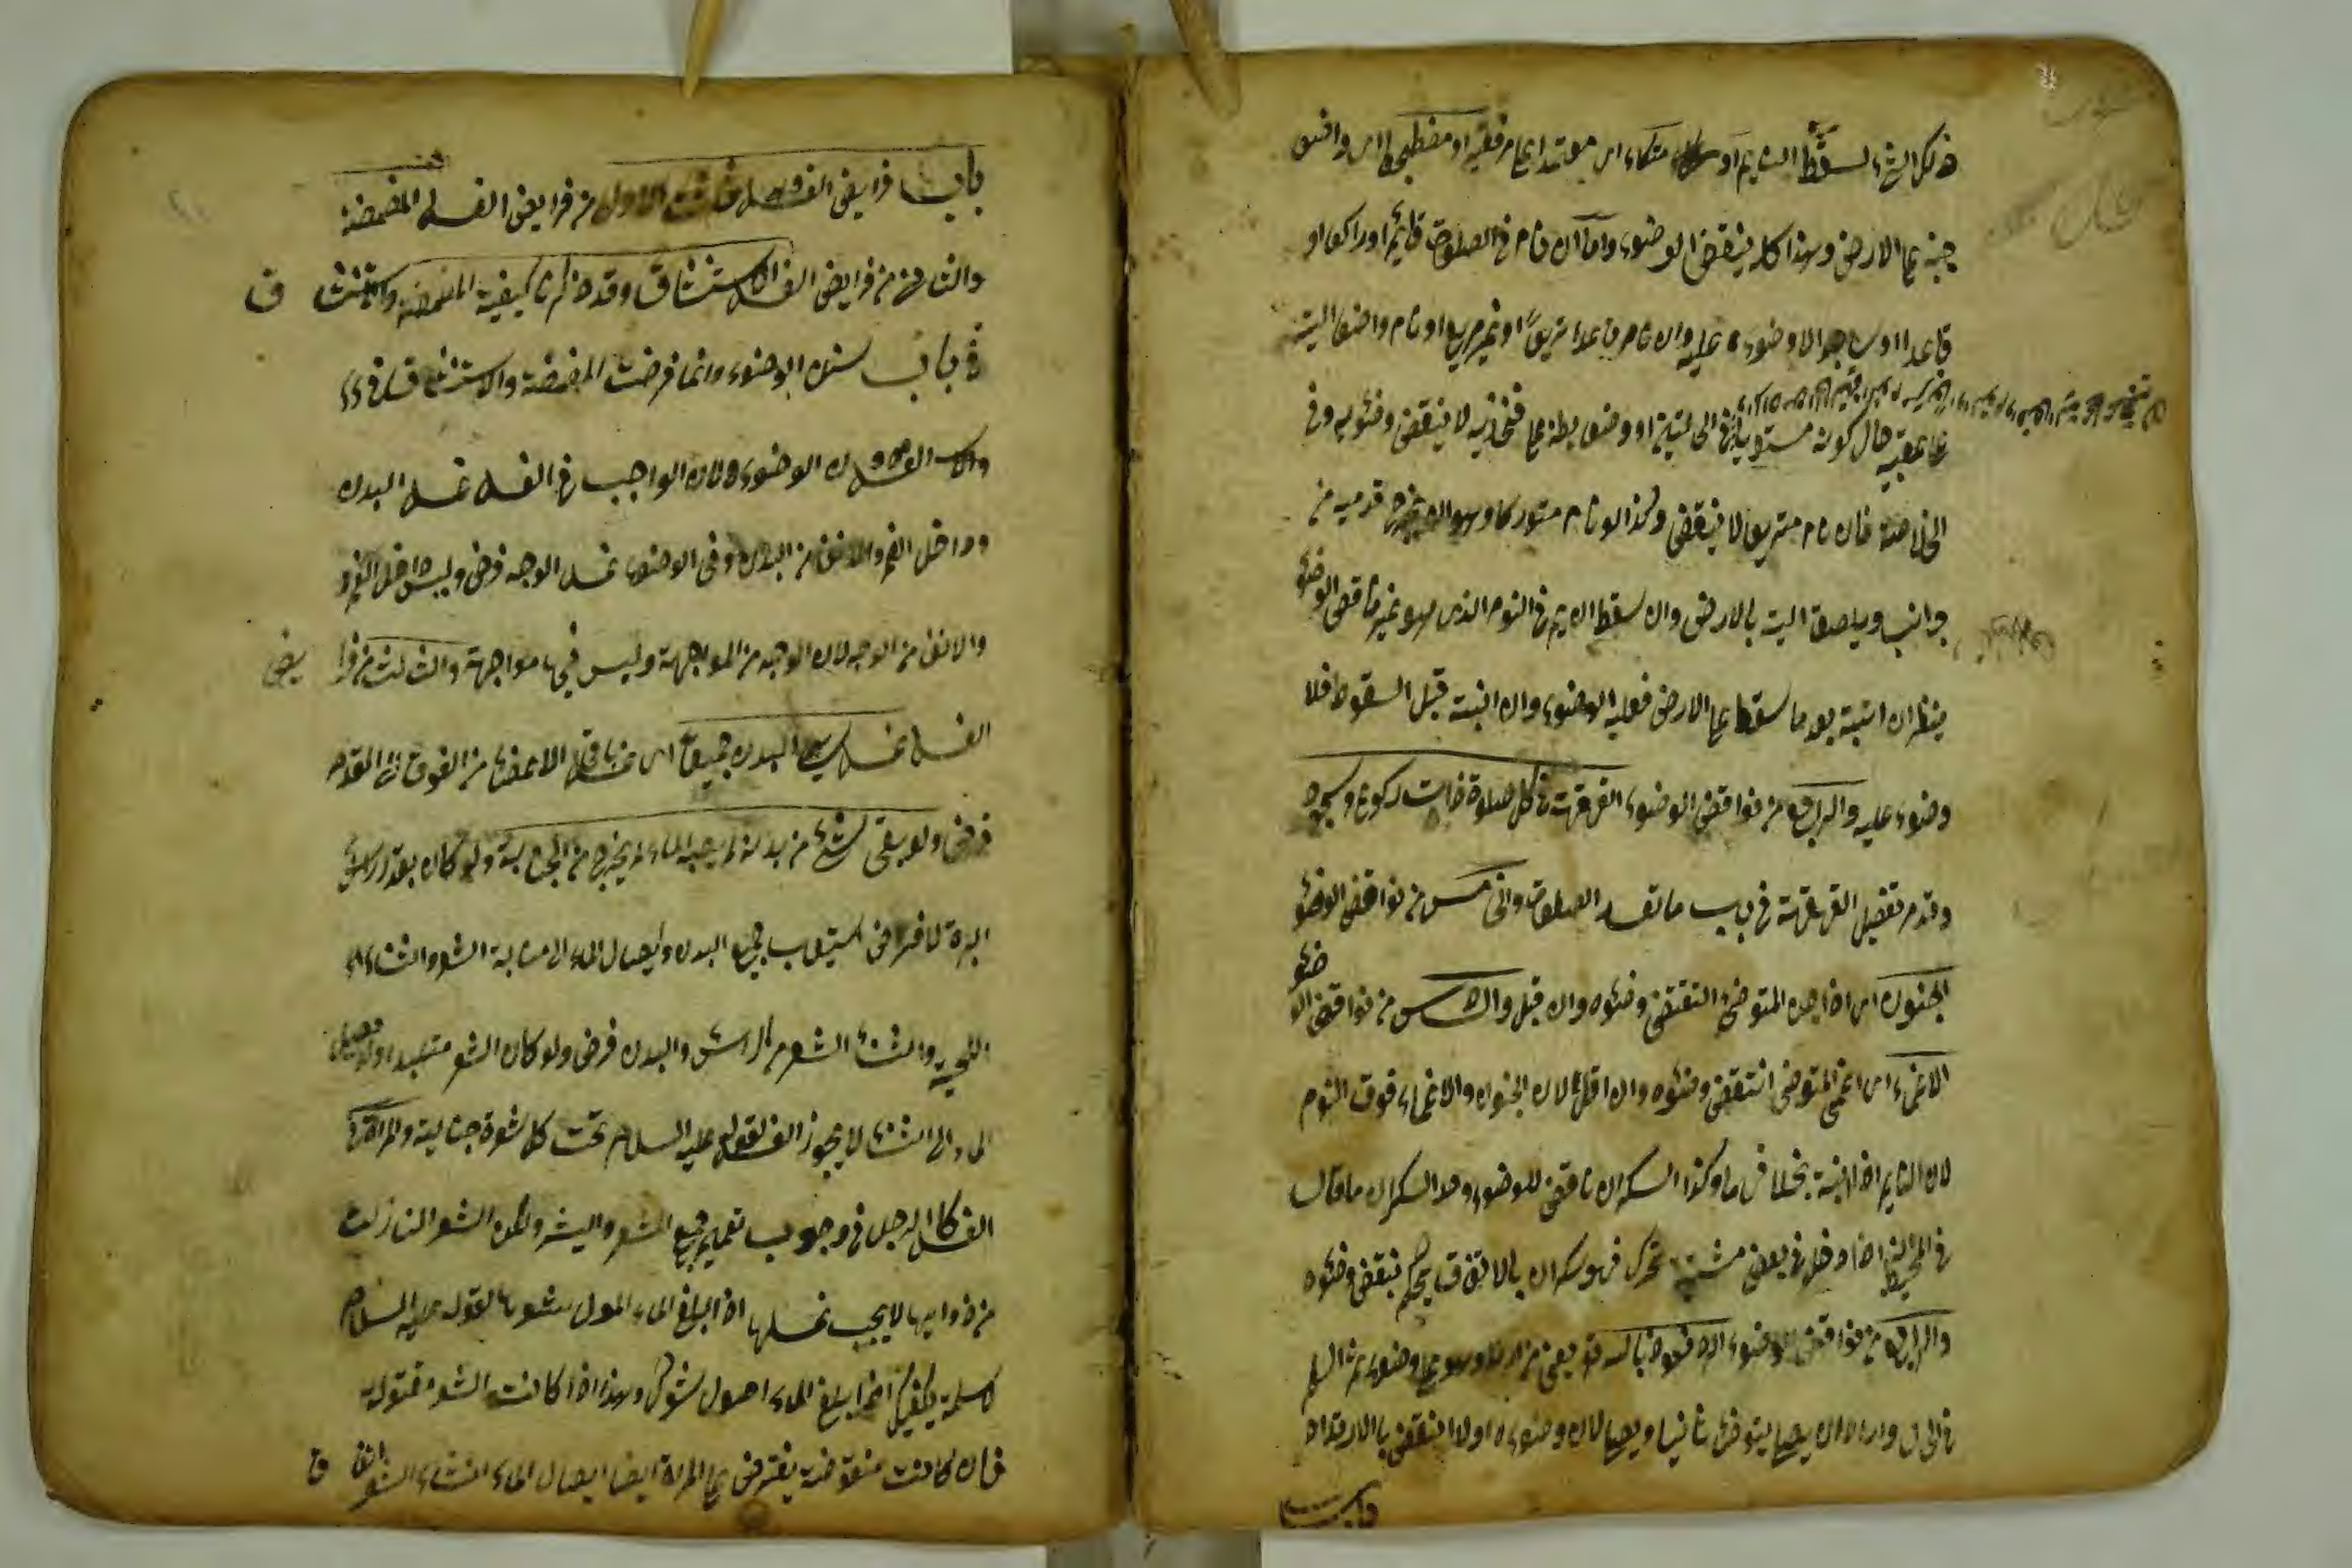 ذلك الشئ لسقط النايم او متكاء اى معتمدا على مرفقيه او مضطجعا اى واضع
جنبه على الارض وهذا كله ينقض الوضوء واما ان نام فى الصلوة قايم او راكعا او
قاعدا او ساجدا لا وضوء عليه وان نام قاعدا متربعا او غير متربع او نام واضعا اليتيه
على عقبيه حال كونه مستويا او وضع بطنه على فخذيه لا ينقض وضوئه وفى
الخلاصة فان نام متربعا لا ينقض وكذا لو نام متوركا وهو ان يخرج قدميه من
جانب ويلصق اليتيه بالارض وان سقط النايم فى النوم الذى هو غير ناقض الوضوء
ينظر ان انتبه بعد ما سقط على الارض فعليه الوضوء وان انتبه قبل السقوط فلا
وضوء عليه والرابع من نواقض الوضوء القهقهة فى كل صلوة ذات ركوع وسجود
وقد مر تفصيل القهقهة فى باب ما تفسد الصلوة والخامس من نواقض الوضوء
الجنون اى اذا جن المتوضئ انتقض وضوئه وان قل والسادس من نواقض الوضوء
الاغماء اى اغمى المتوضئ انتقض وضوئه وان اقل لان الجنون والاغماء فوق النوم
لان النايم اذا انتبه بخلافهما وكذا السكران ناقض للوضوء وحد السكران ما قال
فى المحيط اذا دخل فى بعض مشيته تحرك فهو سكران بالاتفاق يحكم بنقض وضوئه
والرابع من نواقض الوضوء الارتداد نعوذ بالله منه يعنى من ارتد وهو على وضوء ثم اسلم
فى الحال واراد ان يصلى يتوضئ ثانيا ويصلى لان وضوءه اولا انتقض بالارتداد
باب
باب فرايض الغسل الاول من فرايض الغسل المضمضة
والثانى من فرايض الغسل الاستنشاق وقد ذكرنا كيفية المضمضة والاستنشاق
فى باب سنن الوضوء وانما فرضت المضمضة والاستنشاق فى
الغسل دون الوضوء لان الواجب فى الغسل غسل البدن
وداخل الفم والانف من البدن وفى الوضوء غسل الوجه فرض وليس داخل الفم
والانف من الوجه لان الوجه من المواجهة وليس فيهما مواجهة والثالث من فرايض
الغسل غسل ساير البدن جميعا اى غسل باقى الاعضاء من الفوق الى القدم
فرض ولو بقى شئ من بدنه لم يصبه الماء لم يخرج من الجنابة ولو كان بقدر راس
الابرة لافتراض استيعاب جميع البدن وايصال الماء الى منابت الشعر واثناء
اللحية واثناء الشعر من الراس والبدن فرض ولو كان الشعر متلبدا ولم يصل
الماء الى اثنائه لا يجوز الغسل لقوله عليه السلام تحت كل شعرة جنابة والمراة فى
الغسل كالرجل فى وجوب تعميم جميع الشعر والبشرة ولكن الشعر النازلة
من ذوايبها لا يجب غسلها اذا بلغ الماء اصول شعرها لقوله عليه السلام
لام سلمة يكفيك اذا بلغ الماء اصول شعرك وهذا اذا كانت الشعر مفتولة
فان كانت منقوضة يفترض على المراة ايضا ايصال الماء اثناء الشعر